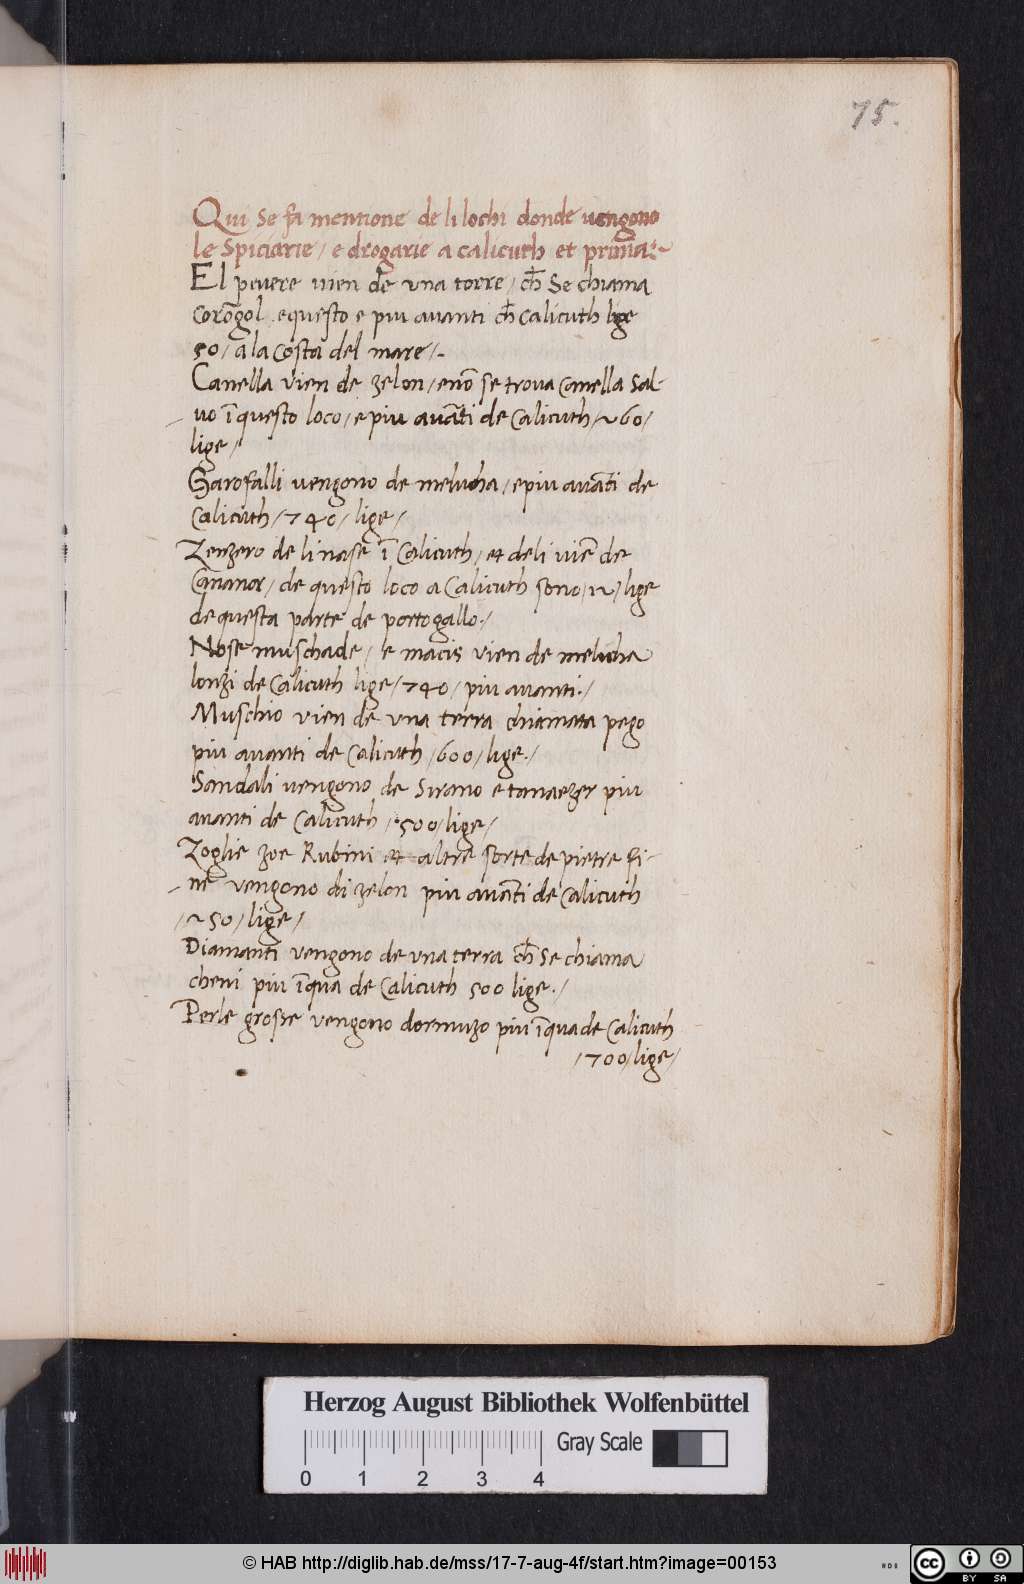 75.
Qui se fa mentione de li lochi donde vengono
le Spiciarie / e drogarie a calicuth et prima:~
El pevere vien de vna torre / ch̄ Se chiama
corōgol . e questo e piu auanti ch̄ calicuth lige
50 / a la costa del mare /.
Canella vien de zelon / e nō se trova canella sal-
uo ī questo loco / e piu auāti de Calicuth / 260 /
lige /
Garofalli vengono de melucha / e piu auāti de
Calicuth / 740 / lige /
Zenzero de li nase ī Calicuth / et de li viē de
Cananor / de questo loco a Calicuth sono / 12 / lige
de questa parte de portogallo /
Nose muschade / e macis vien de melucha
lonzi de Calicuth lige / 740 / piu auanti /
Muschio vien de vna terra chiamata pego
piu auanti de Calicuth / 600 / lige /
Sandali vengono de Sirano e tanaezer piu
auanti de Calicuth / 500 / lige /
Zoglie zoe Rubini et altre sorte de pietre fi-
ne vengono di zelon piu auāti de Calicuth
/ 250 / lige /
Diamanti vengono de vna terra ch̄ se chiama
cheni piu īqua de Calicuth 500 lige /
Perle grosse vengono dormuzo piu īqua de Calicuth
/ 700 / lige /
Herzog August Bibliothek Wolfenbüttel
Gray Scale
0 1 2 3 4
© HAB http://diglib.hab.de/mss/17-7-aug-4f/start.htm?image=00153
cc BY SA